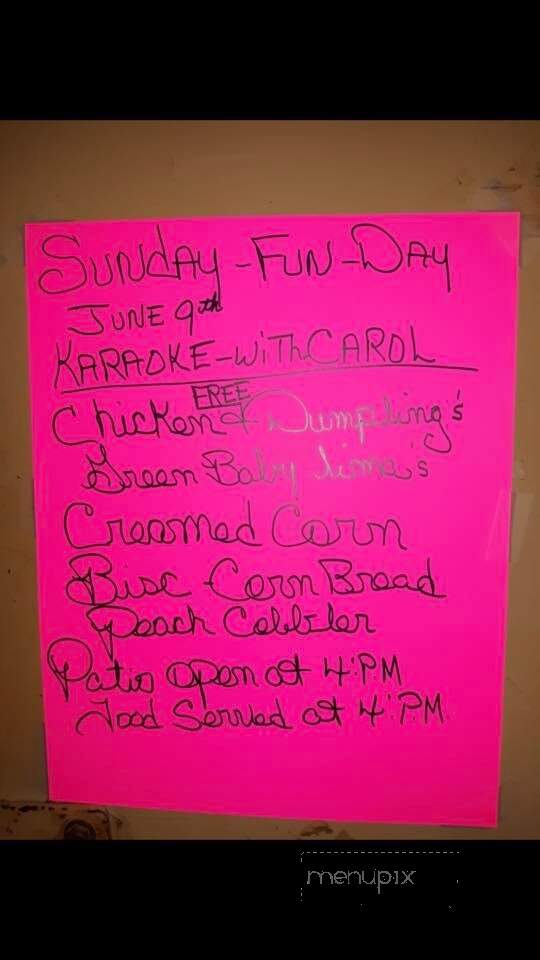 SUNdAY-FUN-DAY
JUNE 9th
KARAOKE-WiTh CAROL
FREE
Chicken & Dumpling's
Green Baby lima's
Creamed Corn
Bisc-Corn Bread
Peach Cobbler
Patio open at 4:P.M
Food Served at 4:P.M.
menupix